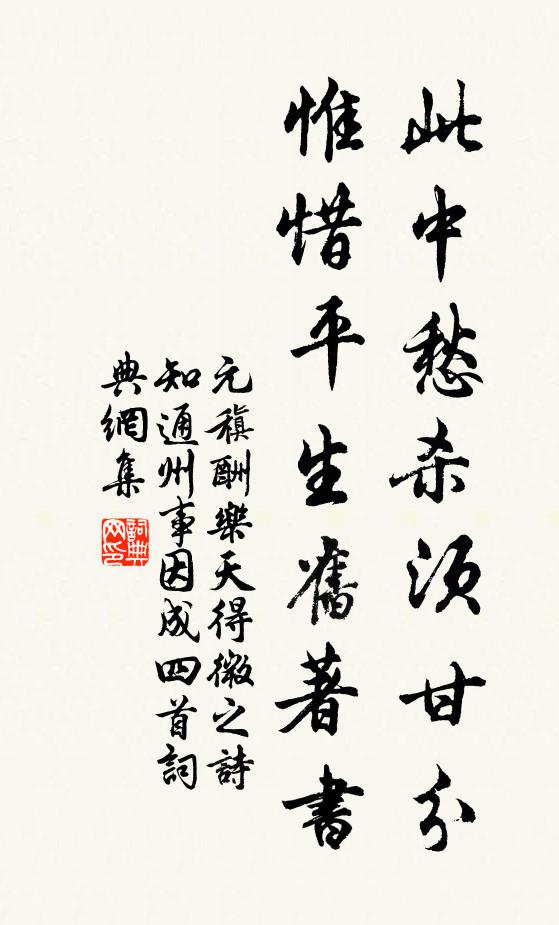 此中愁杀须甘分
惟惜平生舊著書
元稹酬樂天得微之詩
知通州事因成四首詞
典網集
詞典
网印